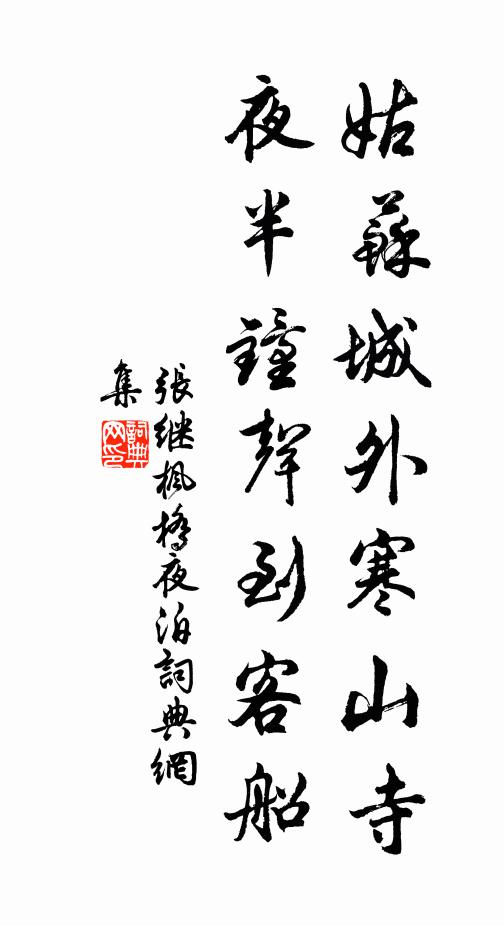 姑蘇城外寒山寺
夜半鐘聲到客船
張继楓橋夜泊詞典網
集
詞典
网印